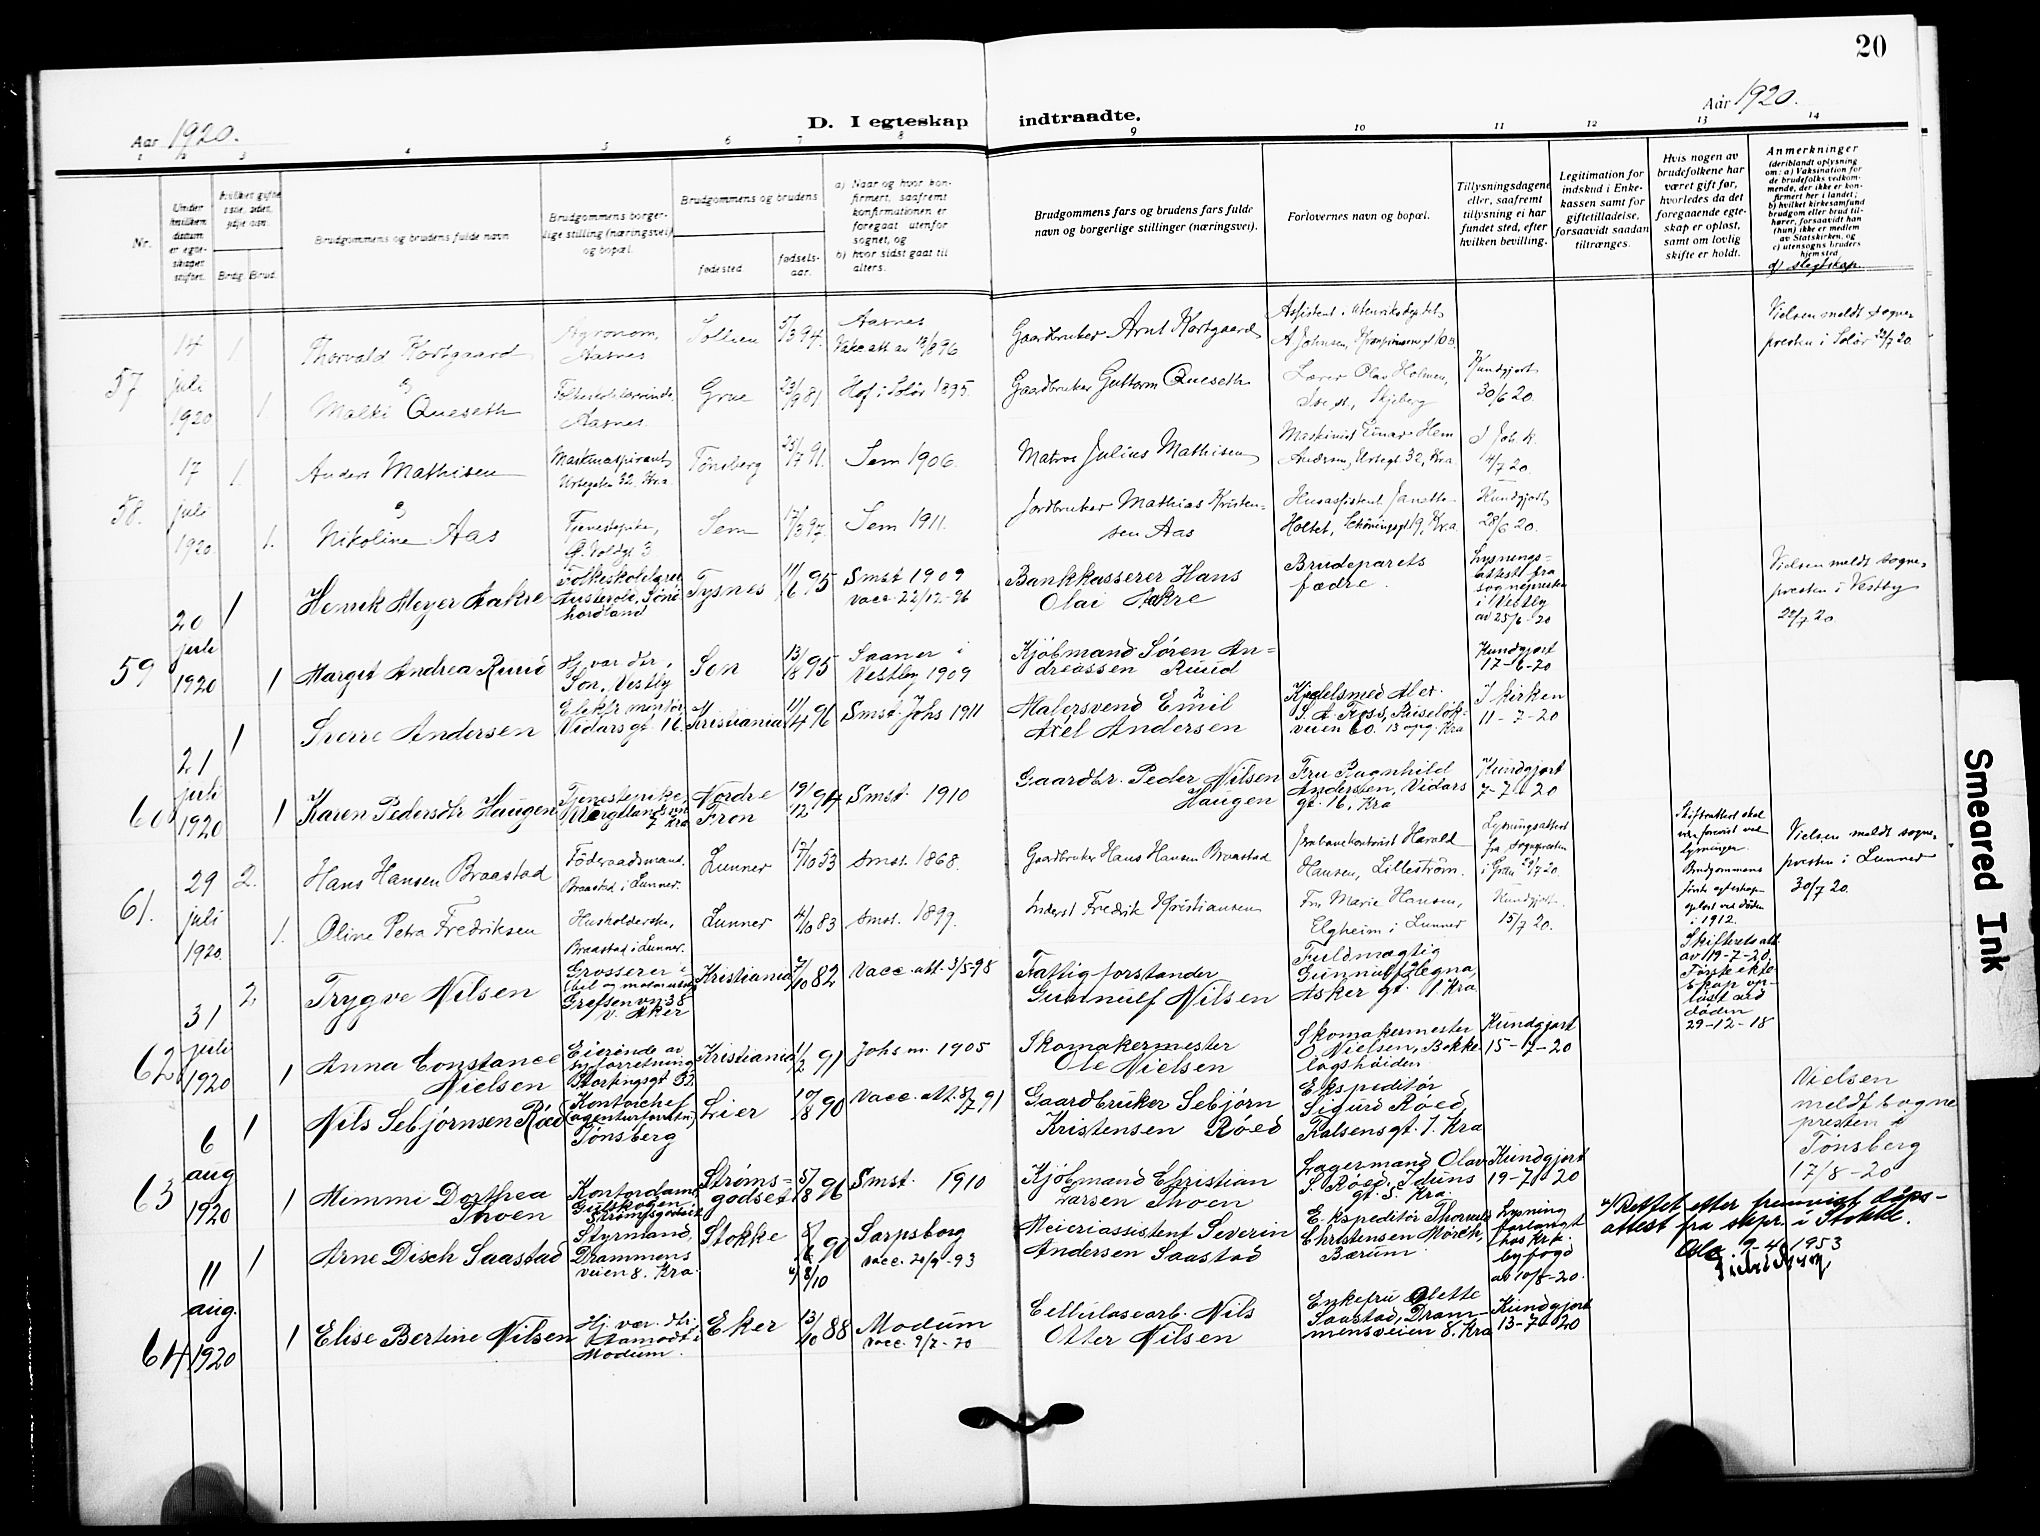 20
Aar 1920.
D. I egteskap indtraadte.
Aar 1920.
1 2 3 4 5 6 7 8 9 10 11 12 13 14
Nr.
Under
hvilken
datum
er egte-
skapet
stiftet.
Brudg. Brud.
Brudgommens og brudens fulde navn
Brudgommens borger-
lige stilling (næringsvei)
og bopæl.
Brudgommens og brudens
fødested
fødsels-
aar.
a) Naar og hvor kon-
firmert, saafremt
konfirmationen er
foregaat utenfor
sognet, og
b) hvor sidst gaat til
alters.
Brudgommens fars og brudens fars fulde
navn og borgerlige stillinger (næringsvei).
Forlovernes navn og bopæl.
Tillysningsdagene
eller, saafremt
tillysning ei har
fundet sted, efter
hvilken bevilling.
Legitimation for
indskud i Enke-
kassen samt for
giftetilladelse,
forsaavidt saadan
tiltrænges.
Hvis nogen av
brudefolkene har
været gift før,
hvorledes da det
foregaaende egte-
skap er opløst,
samt om lovlig
skifte er holdt.
Anmerkninger
(deriblandt oplysning
om: a) Vaksination for
de brudefolks vedkom-
mende, der ikke er kon-
firmert her i landet;
b) hvilket kirkesamfund
brudgom eller brud til-
hører, forsaavidt han
(hun) ikke er medlem
av Statskirken, og
c) utensogns bruders
hjemsted
d) slegtskap.
57
14
juli
1920
1
Thorvald Kortgaard
Agronom,
Aasnes
Sollien
5/3 94.
Aasnes
Gaardbruker Arnt Kortgaard
Vielsen meldt sogne-
presten i Solør 22/7 20.
og
1.
Malti Queseth
Aasnes
Grue
23/9 81.
Hof i Solør 1895.
Gaardbruker Guttorm Queseth
Lærer Olav Holmen,
Skjeberg
Kundgjort
30/6 20.
58.
17
juli
1920
1.
Anders Mathisen
Maskinaspirant
Urtegaten 32. Kra.
Tønsberg
25/7 91.
Sem 1906.
Matros Julius Mathisen
Maskinist Einar Hem
Andersen, Urtegt 32, Kra.
J Joh. K.
14/7 20.
og
1.
Nikoline Aas
Tjenestepike,
Sem
Sem 1911.
Jordbruker Mathias Kristen-
sen Aas
Husassistent Janette
Holtet, Schöningsgt 19, Kr.a
Kundgjort
28/6 20.
59
20
juli
1920
1
Henrik Meyer Aakre
Folkeskolelærer
hordland
Tysnes
11/6 95
Smst 1909
vacc 22/12-96
Bankkasserer Hans
Olai Aakre
Brudeparets
fædre.
Lysnings-
attest fra
sognepresten
i Vestby
av 25/6-20
Vielsen meldt sogne-
presten i Vestby
22/7 20.
1
Margit Andrea Ruud
Hj. var der,
Son, Vestby
Son
13/8 95
Saaner i
Vestby 1909
Kjøbmand Søren An-
dreassen Ruud
Kundgjort
17-6-20
60
21
juli
1920
1
Sverre Andersen
Elektr. montør
Vidarsgt. 16.
Kristiania
11/4 96
Smst. Johs 1911
Malersvend Emil
Axel Andersen
Kjedelsmed Alex.
S. A. Foss, Ruseløk-
veien 60. 13 opg. Kra
I kirken
11-7-20
1
Karen Pedersdtr Haugen
Tjenestepike,
Wergelandsvn
7 Kra
Nordre
Fron
19/12 94
Smst. 1910
Gaardbr. Peder Nilsen
Haugen
Fru Ragnhild
Andersen, Vidars
gt. 16, Kra
Kundgjort
7-7-20
61.
29
juli
1920.
2.
Hans Hansen Braastad
Föderaadsmand.
Braastad i Lunner.
Lunner
17/10 53
Smst. 1868.
Gaardbruker Hans Hansen Braastad
Jernbanekontorist Harald
Hansen, Lillestrøm.
Lysningsattest
fra sognepresten
i Gran 29/7 20.
Skifteattest skal
være forevist ved
lysningen.
Brudgommens
første egteskap
opløst ved døden
i 1912.
Vielsen meldt sogne-
presten i Lunner
30/7 20.
1.
Oline Petra Fredriksen
Husholderske,
Braastad i Lunner.
Lunner
4/10 83
Smst. 1899.
Inderst Fredrik Kristiansen
Fru Marie Hansen,
Elgheim i Lunner
Kundgjort
15/7 20.
62
31
juli
1920
2
Trygve Nilsen
Grosserer i
Grefsenvn. 38
v. Aker
Kristiania
7/10 82
Vacc. att. 3/5-98
Fattigforstander
Gunnulf Nilsen
Fuldmægtig
Gunnulf Hegna,
Asker gt. 1 Kra
Skifterets att.
av 19-7-20,
Første ekte-
skap op-
løst ved
døden
29-12-18
1
Anna Constance
Nielsen
Eierinde av
sy forretning
Stortingsgt 32
Kristiania
1/2 91
Johs m. 1905
Skomakermester
Ole Nielsen
Skomakermester
O. Nielsen, Bekke-
lagshøiden
Kundgjort
15-7-20
63
6
aug
1920
1
Nils Sebjørnsen Røed
Kontorchef
(agenturforretn)
Tønsberg
Lier
10/8 90
Vacc. att. 8/7 91
Gaardbruker Sebjørn
Kristensen Røed
Ekspeditør
Sigurd Røed,
Falsensgt. 7. Kra
Vielsen
meldt sogne
presten i
Tønsberg
17/8-20
1
Mimmi Dorthea
Thoen
Kontordame
Gulskogen
Strømsgodset
Strøms-
godset
5/8 96
Smst. 1910
Kjøbmand Christian
Larsen Thoen
Lagermand Olav
S. Røed, Iduns
gt. 5. Kra
Kundgjort
19-7-20
64
11
aug.
1920
1
Arne Disch Saastad
Styrmand,
Drammens
veien 8. Kra.
Stokke
90
x) 8/10
Sarpsborg
vacc. 20/9-93
Meieriassistent Severin
Andersen Saastad
Ekspeditør Thorvald
Christensen Mörch,
Bærum
Lysning
forlangt
hos Kra.
byfogd
av 10/8-20.
x) Rettet etter fremvist dåps-
attest fra sokpr. i Stokke.
Oslo. 9-4-1953
1
Elise Bertine Nilsen
Hj. var. dtr.
Modum.
Eker
13/10 88
Modum
vacc. 9/7-20
Cellulosearb. Nils
Otter Nilsen
Enkefru Olette
Saastad, Dram-
mensveien 8. Kra
Kundgjort
13-7-20
Smeared Ink